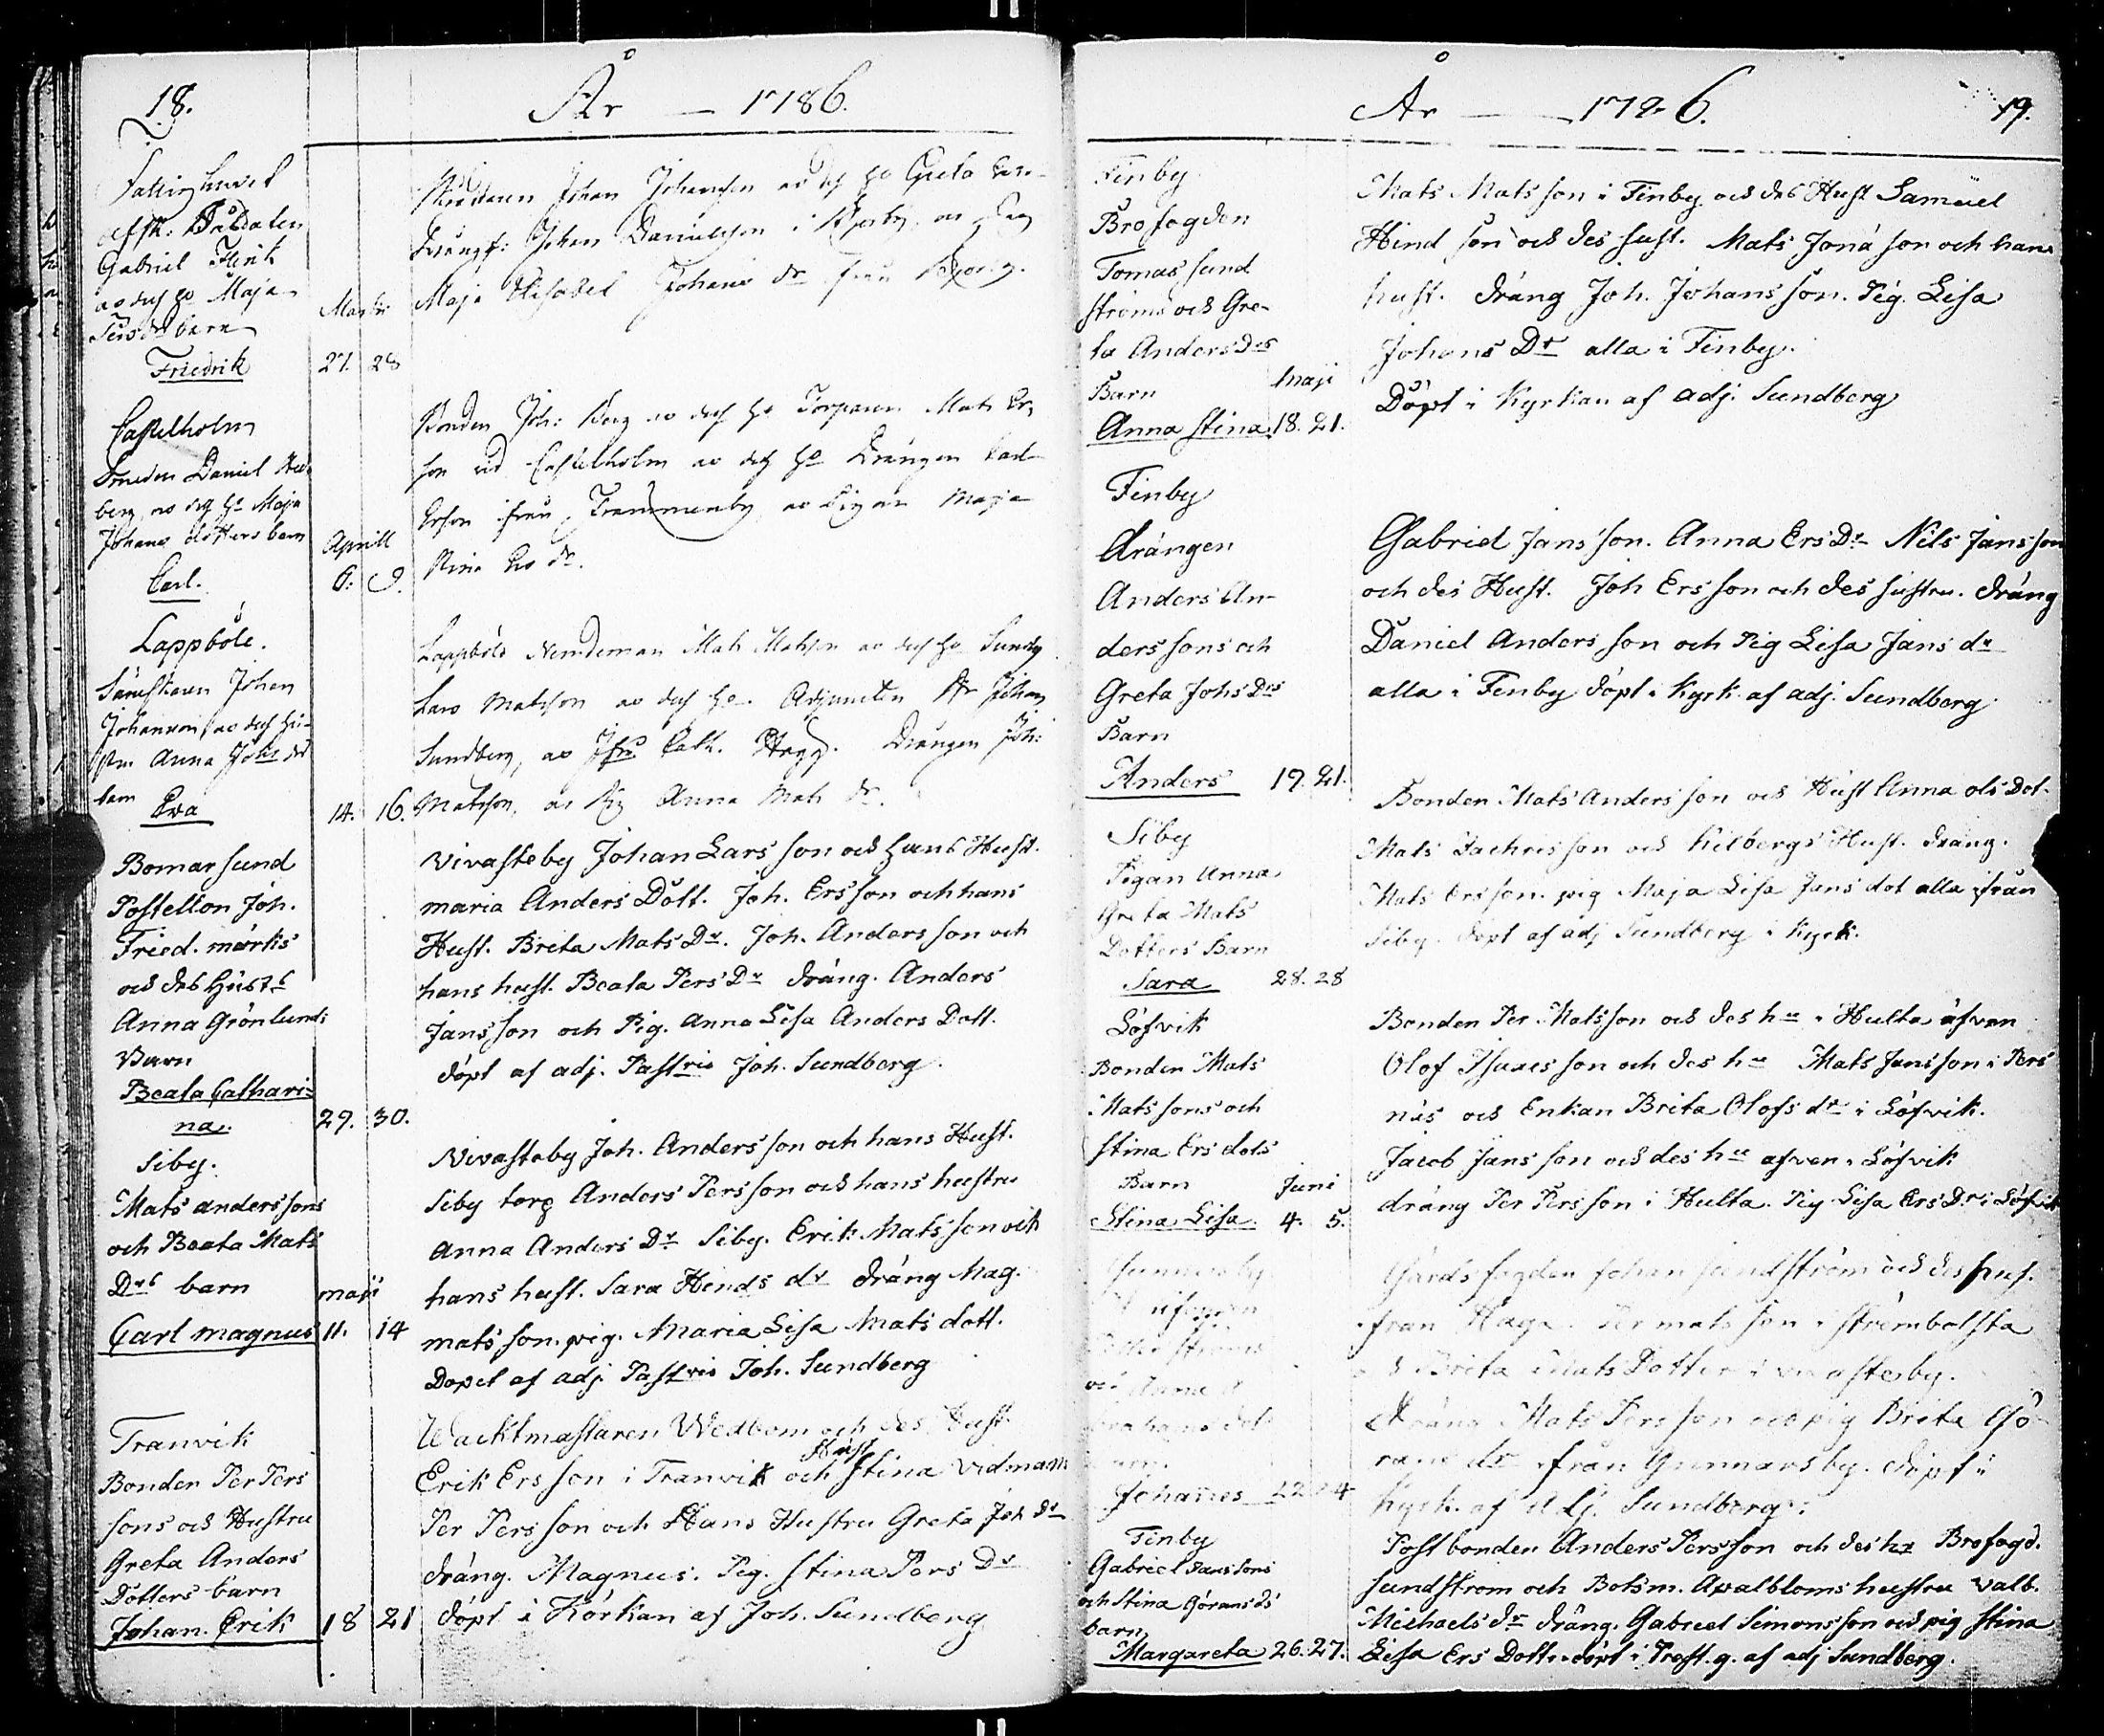 18.
År — 1786.
Fattighuset
afsk: Soldaten
Gabriel Flink
ao dess ho Maja
barn
Friedrik
Martii
27. 28
Johan Johansson ao dess ho Greta
Drängf: Johan Danielsson i
Maja Elisabet Johans dr från
Castelholm
Smeden Daniel
berg, ao dess ho Maja
Johans dotters barn
Carl.
Aprill
6. 9.
Bonden Joh: Berg ao dess ho Torparen Mats Ers
son vid Castelholm ao dess ho Drängen Carl
Ersson ifrån ao Pigan Maja
Stina Ers dr.
Lappböle.
Johan
Johansson, ao dess hu-
stru Anna Johs dr
barn
Eva
14. 16.
Lappböle Nemdeman Mats Matsson ao dess ho Sundby
Lars Matsson ao dess ho. Adjuncten Hr Johan
Sundberg, ao Jfru Cath. Drängen Joh:
Matsson, ao Pig Anna Mats dr.
Bomarsund
Postellon Joh.
Fried. mörks
och des Hust
Anna Grönlunds
Barn
Beata Cathari-
na.
29. 30.
Vivasteby Johan Lars son och hans Hust.
maria Anders Dott. Joh. Ersson och hans
Hust. Brita Mats Dr. Joh. Anders son och
hans hust. Beata Pers Dr dräng. Anders
Jans son och Pig. Anna Lisa Anders Dott.
döpt af adj. Pastris Joh. Sundberg.
Siby.
Mats anders sons
och Beata Mats
Drs barn
Carl magnus
maji
11. 14
Vivasteby Joh. Anders son och hans Hust.
Siby torp Anders Pers son och hans hustru
Anna Anders Dr Siby. Erik Mats son och
hans hust. Sara Hinds dr dräng Mag.
mats son. pig. Maria Lisa Mats dott.
Döpet af adj. Pastris Joh. Sundberg
Tranvik
Bonden Per Pers
sons och Hustru
Greta Anders
Dotters barn
Johan. Erik
18 21
Wacktmästaren Wedbom och des Hust.
Hust
Erik Ers son i Tranvik och Stina Vidmam
Per Pers son och Hans Hustru Greta Joh dr
dräng. Magnus. Pig. Stina Pers Dr
döpt i Körkan af Joh. Sundberg
År — 1786.
19.
Finby
Brofogden
Tomas sund
ströms och Gre-
ta Anders Drs
Barn
Anna Stina
maji
18. 21.
Mats Mats son i Finby och des Hust Samuel
Hind son och des hust. Mats Jona son och hans
hust. dräng Joh. Johans son. Pig. Lisa
Johans Dr alla i Finby.
Döpt i Kyrkan af adj. Sundberg
Finby
drängen
Anders An-
ders sons och
Greta Johs Drs
Barn
Anders
19. 21.
Gabriel Jans son. Anna Ers Dr Nils Jans son
och des Hust. Joh Ers son och des hustru. dräng
Daniel Anders son och Pig Lisa Jans dr
alla i Finby döpt i Kyrk. af adj. Sundberg
Siby
Pigan Anna
Greta Mats
Dotters Barn
Sara
28. 28
Bonden Mats Anders son och Hust Anna ols Dot.
Mats Zachris son och Kilbergs Hust. dräng.
Mats Ers son. pig Maja Lisa Jans dot alla ifrån
Siby. döpt af adj Sundberg i Kyrk.
Löfvik
Bonden Mats
Mats sons och
Stina Ers dots
Barn
Stina Lisa.
Juni
4. 5.
Bonden Per Mats son och des hu i Hulta äfven
Olof Isacs son och des hu Mats Jans son i Pers
näs och Enkan Brita Olofs dr i Löfvik.
Jacob Jans son och des hu afven i Löfvik
dräng Per Pers son i Hulta. Pig Lisa Ers Dr i Löfvik
Gunnarsby
ströms
och Anna
dot
Johannes 22 24
Gårds fogden Johan sundström och des hus.
från Haga. Per mats son i strömbolsta
och Brita Mats Dotter i vivasteby.
Dräng Mats Pers son och pig Brita Gö
rans dr ifrån Gunnarsby. döpt i
Kyrk. af Adj. Sundberg.
Finby
Gabriel Jans sons
och Stina Görans ds
barn
Margareta 26. 27.
Post bonden Anders Pers son och des hu Brofogd.
sundström och Botsm. Apalbloms hustru Valb.
Michaels dr dräng. Gabriel Simons son och pig Stina
Lisa Ers Dott. döpt i Prest. g. af adj Sundberg.